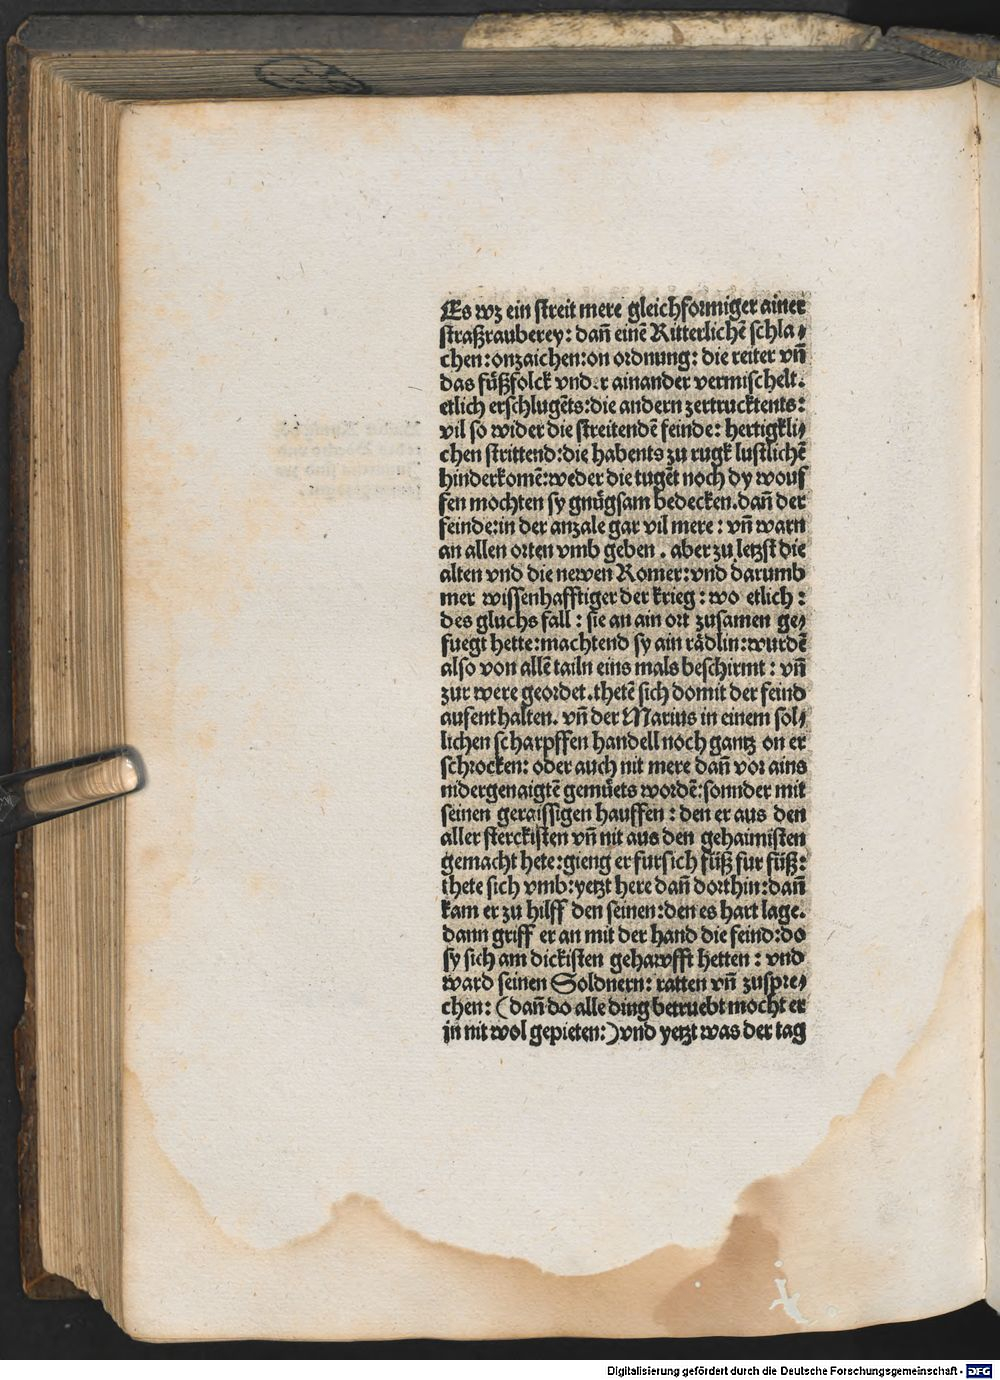 Es wz ein streit mere gleichformiger ainer
straßrauberey: dañ einē Ritterlichē schla⸗
chen: onzaichen: on ordnung: die reiter vñ
das fůßfolck vnd.r ainander vermischelt.
etlich erschlugēts: die andern zertrucktents:
vil so wider die streitendē feinde: hertigkli⸗
chen strittend: die habents zu rugk lustlichē
hinderkomē: weder die tugēt noch dy wouf
fen mochten sy gnůgsam bedecken. dañ der
feinde: in der anzale gar vil mere: vñ warn
an allen orten vmb geben. aber zu letzst die
alten vnd die newen Romer: vnd darumb
mer wissenhafftiger der krieg: wo etlich:
des gluchs fall: sie an ain ort zusamen ge⸗
fuegt hette: machtend sy ain rådlin: wurdē
also von allē tailn eins mals beschirmt: vñ
zur were geordet. thetē sich domit der feind
aufenthalten. vñ der Marius in einem sol⸗
lichen scharpffen handell noch gantz on er
schrocken: oder auch nit mere dañ vor ains
nidergenaigtē gemůets wordē: sonnder mit
seinen geraissigen hauffen: den er aus den
aller sterckisten vñ nit aus den gehaimisten
gemacht hete: gieng er fursich fůß fur fůß:
thete sich vmb: yetzt here dañ dorthin: dañ
kam er zu hilff den seinen: den es hart lage.
dann griff er an mit der hand die feind: do
sy sich am dickisten gehawfft hetten: vnd
ward seinen Soldnern: ratten vñ zuspre⸗
chen: (dañ do alle ding betruebt mocht er
jn nit wol gepieten:) vnd yetzt was der tag
Digitalisierung gefördert durch die Deutsche Forschungsgemeinschaft - DFG